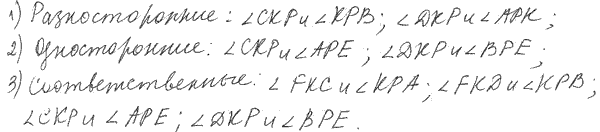 1) Разносторонние: ∠CKP и ∠KPB; ∠DKP и ∠APK;
2) Односторонние: ∠CKP и ∠APE; ∠DKP и ∠BPE;
3) Соответственные: ∠FKC и ∠KPA; ∠FKD и ∠KPB;
∠CKP и ∠APE; ∠DKP и ∠BPE.